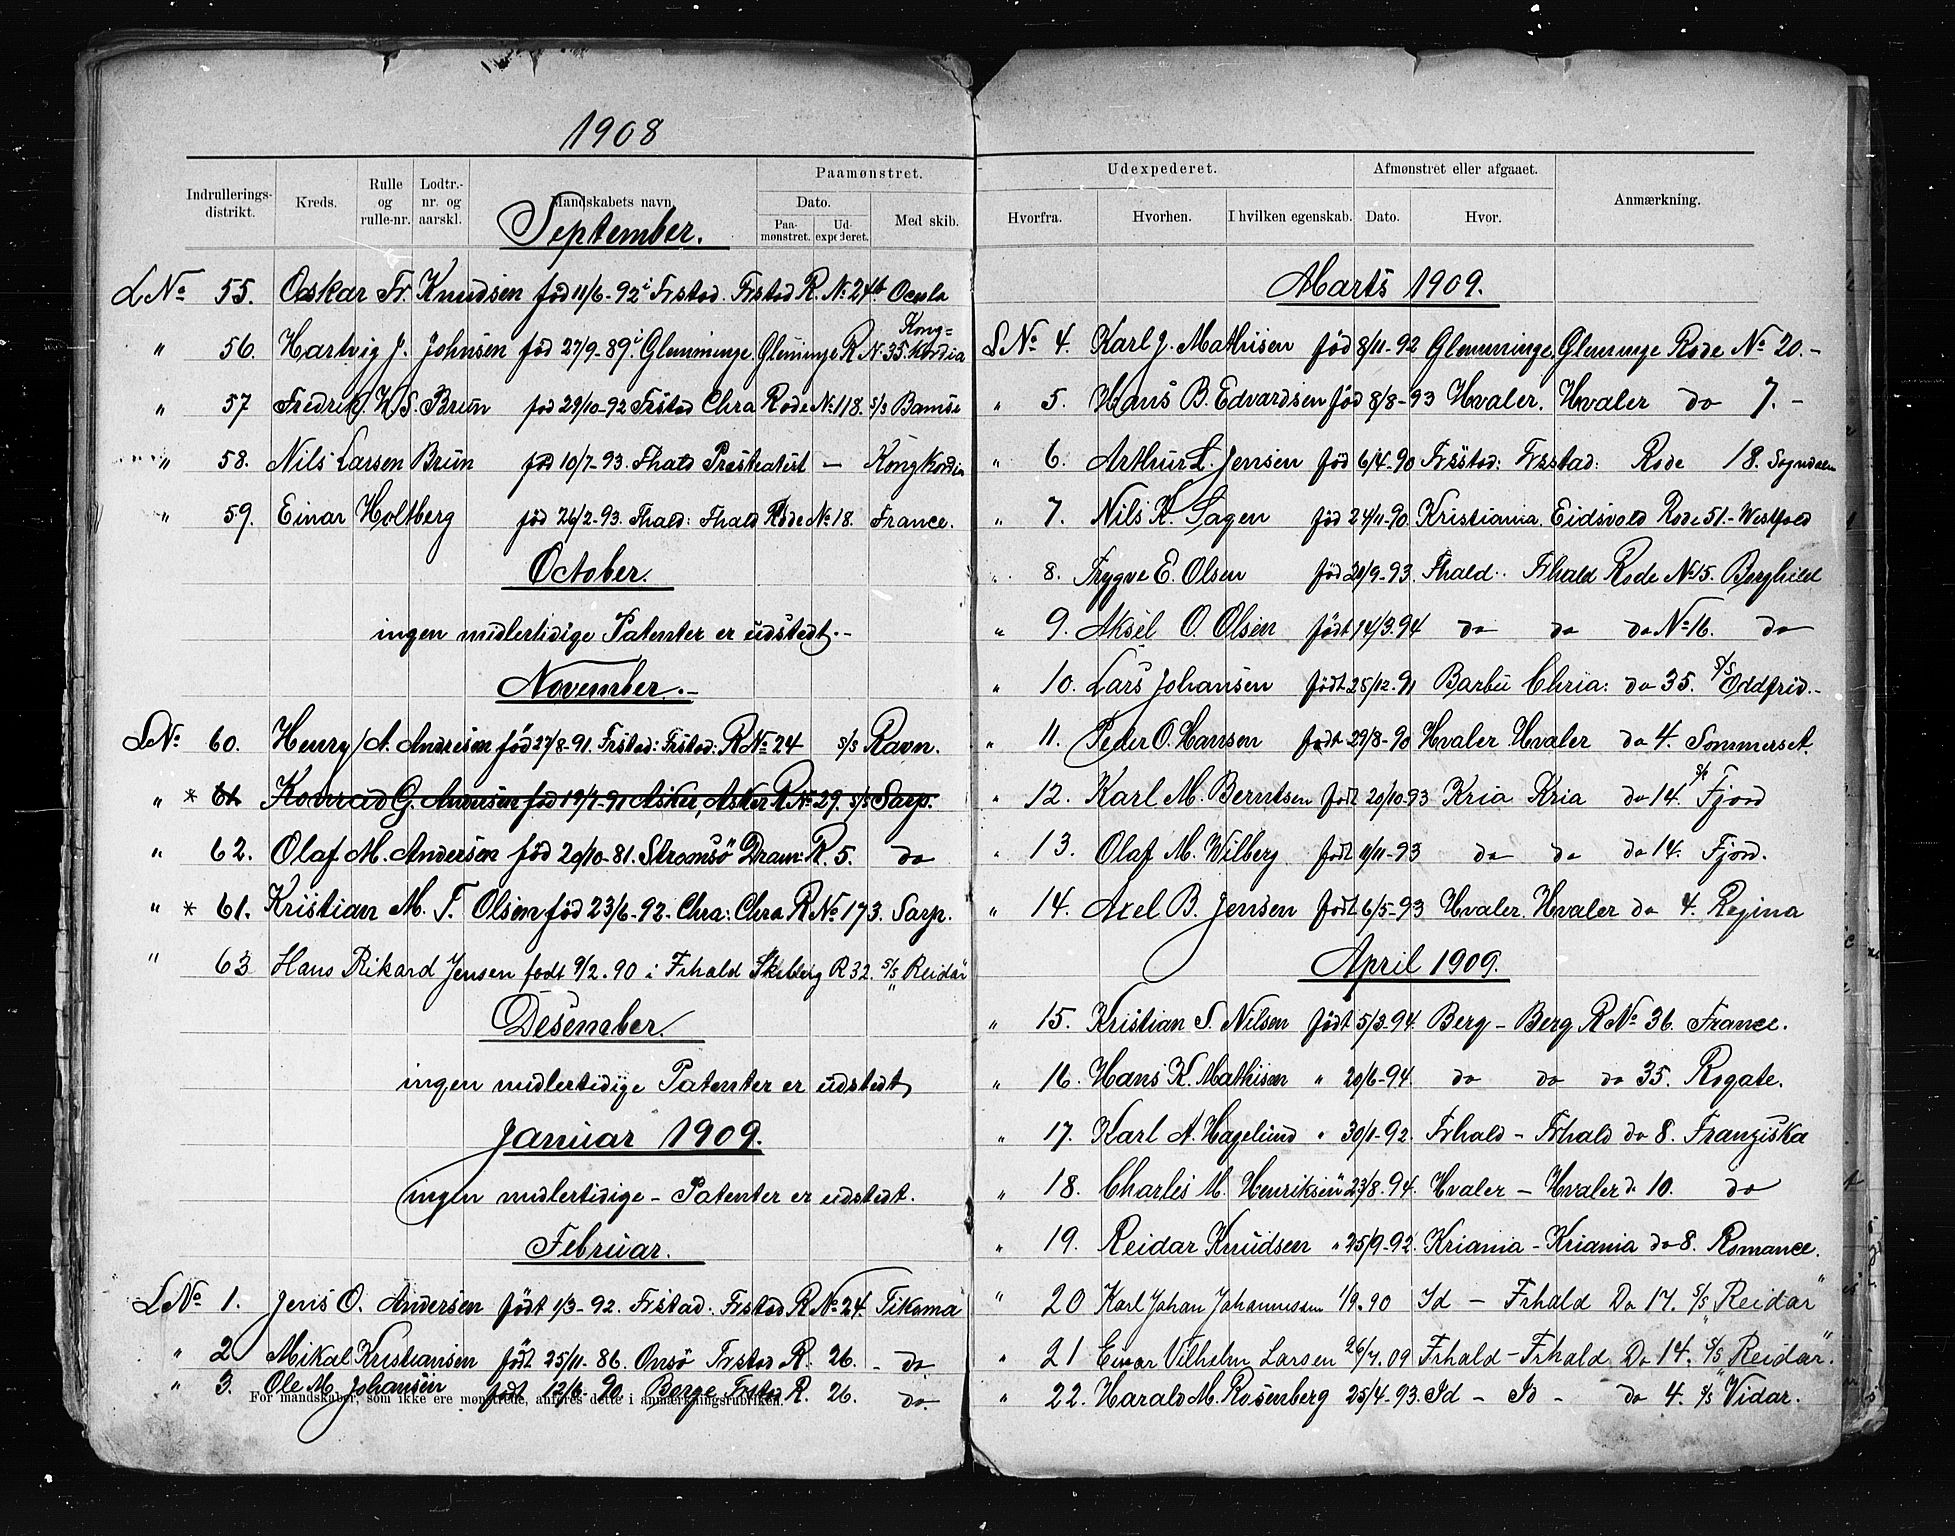 1908
Indrullerings-distrikt. Kreds. Rulle og rulle-nr. Lodtr.-nr. og aarskl. Mandskabets navn. Paamønstret. Dato. Paa-mønstret. Ud-expederet. Med skib.
September.
LNo 55. Oskar Fr. Knudsen fød 11/6-92 i Frstad. Frstad R. No 24b Ocula
" 56. Hartvig J. Johnsen fød 27/9-89 i Glemminge. Glemminge R No 35. Kong-Kordia
" 57 Fredrik W.S. Brün fød 29/10-92 Frstad Chra Rode No 118. s/s Bamse
" 58. Nils Larsen Brün fød 10/7-93. Fhald - Kong Kordia
" 59. Einar Holtberg fød 26/2-93. Fhald: Fhald Rode No 18. France.
October.
ingen midlertidige Patenter er udstedt.-
November.-
LNo 60. Henry A. Andresen fød 27/8-91. Frstad: Frstad: R No 24 s/s Ravn.
" * 61 Konrad G. Andresen fød 19/7-91 Asker, Asker R No 29. s/s Sarp.
" 62. Olaf M. Andersen fød 20/10-81. Strømsö Dram: R. 5. do
" * 61. Kristian M. F. Olsen fød 23/6-92. Chra: Chra R No 173. Sarp.
" 63 Hans Rikard Jensen født 9/2.90 i Frhald Skeberg R 32. s/s "Reidar
Desember.
ingen midlertidige Patenter er udstedt
Januar 1909.
ingen midlertidige - Patenter er udstedt.
Februar.
LNo 1. Jens O. Andersen født 1/3-92. Frstad. Frstad R No 24. Tikoma
" 2 Mikal Kristiansen født 25/11-86. Onsø Frstad R. 26. - do
" 3. Ole M. Johansen født 12/6-90 Borge Frstad R. 26. do.
For mandskaber, som ikke ere mønstrede, anføres dette i anmærkningsrubriken.
Udexpederet. Hvorfra. Hvorhen. I hvilken egenskab. Afmønstret eller afgaaet. Dato. Hvor. Anmærkning.
Marts 1909.
LNo 4. Karl J. Mathisen fød 8/11-92 Glemminge, Glemminge Rode No 20.-
" 5. Hans B. Edvardsen fød 8/8-93 Hvaler. Hvaler do 7.-
" 6. Arthur L. Jensen fød 6/4-90 Frstad: Frstad: Rode 18. Sogndalen
" 7. Nils K. Sagen fød 24/11-90 Kristiania. Eidsvold Rode 51.- Westfold
" 8. Trygve E. Olsen fød 21/9-93. Fhald. Frhald Rode No 15. Borghild
" 9. Aksel O. Olsen født 14/3.94 do do do No 16. do
" 10. Lars Johansen født 25/12.91 Barbu Chria: do 35. s/s Oddfrid.-
" 11. Peder O. Hansen født 29/8-90 Hvaler Hvaler do 4. Sommerset.
" 12. Karl M. Berntsen født 20/10-93 Kria Kria do 14. s/s Fjord
" 13. Olaf M. Wilberg født 11/11-93 do do do 14. Fjord.
" 14. Axel B. Jensen født 6/5-93 Hvaler. Hvaler do 4. Regina
April 1909.
" 15. Kristian S. Nilsen født 5/3.94. Berg - Berg R No 36. France.
" 16. Hans K. Mathisen " 20/6-94 do do do 35. Rogate.
" 17. Karl A. Hagelund " 30/1-92. Frhald - Frhald do 8. Franziska
" 18. Charles M. Henriksen " 23/8.94. Hvaler - Hvaler do 10. do
" 19. Reidar Knudsen " 25/9-92. Kriania - Kriania do 8. Romance.
" 20 Karl Johan Johannessen 1/9.90 Id - Frhald Do 17. s/s "Reidar"
" 21 Einar Vilhelm Larsen 26/7.09 Frhald - Frhald Do 14. s/s "Reidar".
" 22. Harald M. Rosenberg 25/4.93. Id - Id - do 4. s/s "Vidar.